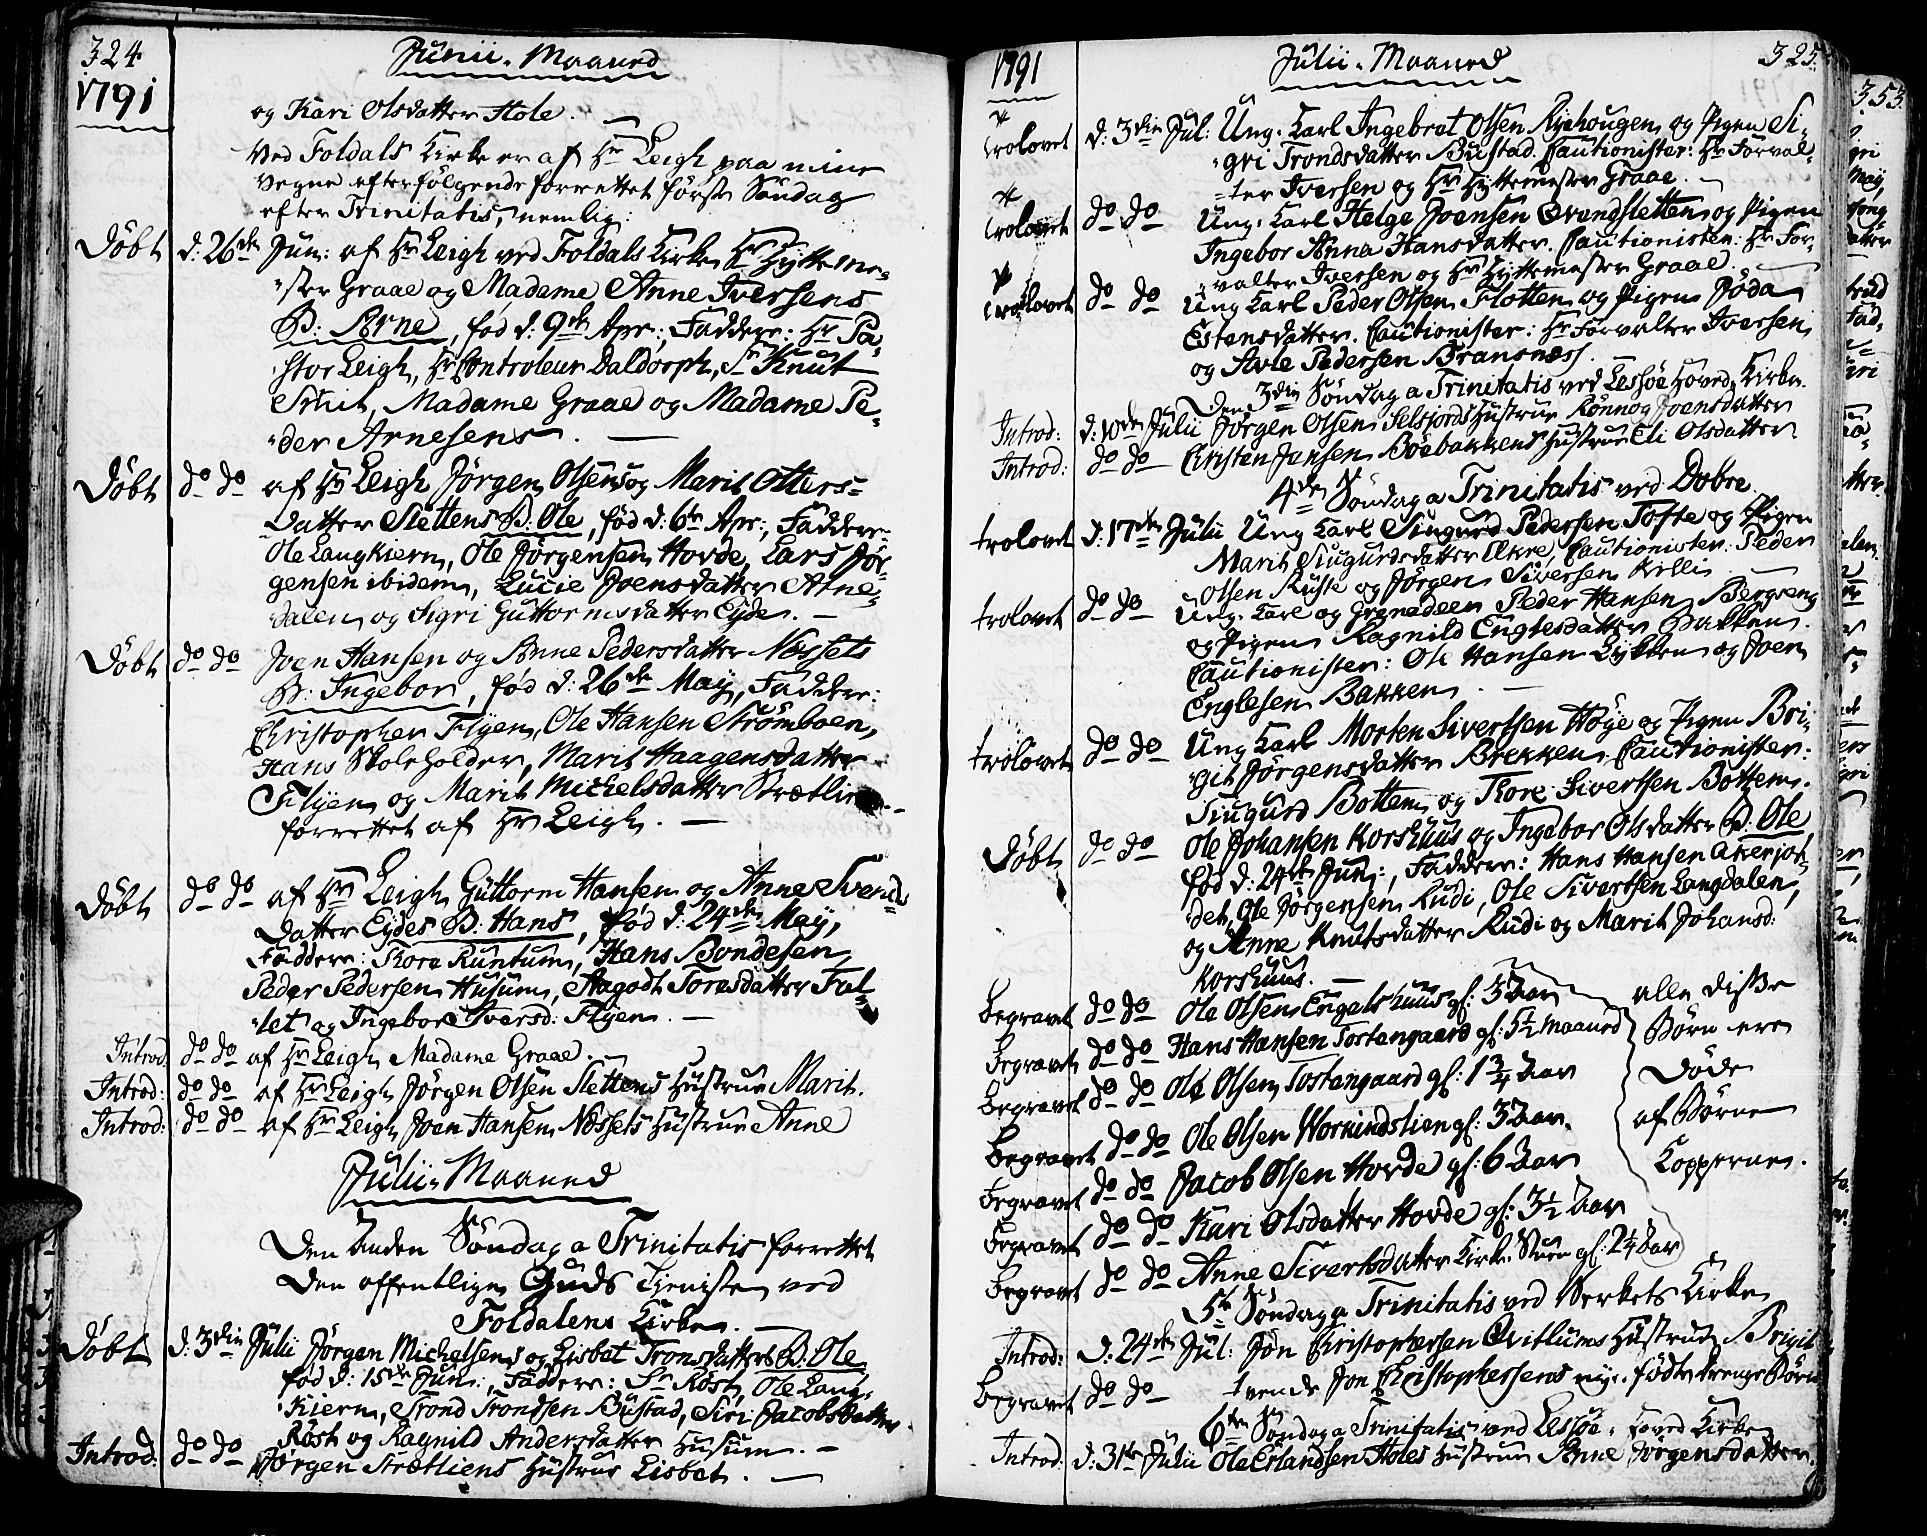 324
1791
Junii-Maaned
og Kari Olsdatter Hole.
Ved Foldals Kirke er af Hr Leigh paa mine
Vegne efterfølgende forrettet første Søndag
efter Trinitatis, nemlig:
Døbt d: 26de Jun: af Hr Leigh ved Foldals Kirke Hr Hytteme-
ster Graae og Madame Anne Iversens
B: Arne, fød d: 9de Apr:, Faddere: Hr Pa-
stor Leigh, Hr Controleur Daldorph, Sr Knut
Smit, Madame Graae og Madame Pe-
der Arnesens.
Døbt do do af Hr Leigh Jørgen Olsens og Marit Otters-
datter Slettens B: Ole, fød d: 6te Apr:, Faddere:
Ole Langkiern, Ole Jørgensen Hovde, Lars Jør-
gensen ibidem, Lucie Joensdatter Atne-
dalen og Sigri Guttormsdatter Eyde.
Døbt do do Joen Hansen og Anne Pedersdatter Nessets
B: Ingebor, fød d: 26de May, Faddere:
Christopher Flyen, Ole Hansen Strømboen,
Hans Skoleholder, Marit Haagensdatter
Flyen og Marit Michelsdatter
forrettet af Hr Leigh.
Døbt do do af Hr Leigh Guttorm Hansen og Anne Svends-
datter Eydes B: Hans, fød d: 24de May,
Faddere: Thore Runtum, Hans Bondesen
Peder Pedersen Husum, Aagodt Toresdatter Fal-
let og Ingebor Iversd: Flyen.
Introd: do do af Hr Leigh Madame Graae.
Introd: do do af Hr Leigh Jørgen Olsen Slettens Hustrue Marit.
Introd: do do af Hr Leigh Joen Hansen Nessets Hustrue Anne
Julii-Maaned
Den Anden Søndag a Trinitatis forrettet
den offentlige Guds Tjeniste ved
Foldalens Kirke.
Døbt d: 3die Julii Jørgen Michelsens og Lisbet Tronsdatters B: Ole
fød d: 15de Jun:, Faddere: Sr Røst, Ole Lang-
kiern, Trond Trondsen Bustad, Siri Jacobsdatter
Røst og Ragnild Andersdatter Husum.
Introd: do do Jørgen Strætliens Hustrue Lisbet.
1791
Julii-Maaned
325
trolovet d: 3die Jul: Ung-Karl Ingebrat Olsen Ryehougen og Pigen Si-
gri Trondsdatter Bustad. Cautionister: Hr Forval-
ter Iversen og Hr Hyttemester Graae.
trolovet do do Ung-Karl Helge Joensen Evensletten og Pigen
Ingebor Anna Hansdatter. Cautionister: Hr For-
valter Iversen og Hr Hyttemester Graae.
trolovet do do Ung Karl Peder Olsen Slotten og Pigen Jøda
Estensdatter. Cautionister: Hr Forvalter Iversen
og Avle Pedersen Bransness.
Den 3die Søndag a Trinitatis ved Lessøe Hoved-Kirke.
Introd: d: 10de Julii Jørgen Olsen Selsjords Hustrue Rønnog Joensdatter
Introd: do do Christen Jansen Bøebakkens Hustrue Eli Olsdatter.
4de Søndag a Trinitatis ved Dobre
trolovet d: 17de Julii Ung Karl Siugurd Pedersen Tofte og Pigen
Marit Siugurdsdatter Ekre, Cautionister: Peder
Olsen Ruste og Jørgen Siversen Killi
trolovet do do Ung-Karl og Grenadeer Peder Hansen Bergseng
og Pigen Ragnild Englesdatter Bakken.
Cautionister: Ole Hansen Lykken og Joen
Englesen Bakken.
trolovet do do Ung Karl Morten Sivertsen Høye og Pigen Bri-
git Jørgensdatter Brekken. Cautionister:
Siugurd Bottem og Thore Sivertsen Bottem.
Døbt do do Ole Johansen Korshuus og Ingebor Olsdatter B: Ole,
fød d: 24de Jun:, Faddere: Hans Hansen Akerjor-
det, Ole Jørgensen Rudi, Ole Sivertsen Langdalen,
og Anne Knutsdatter Rudi og Marit Johansd:
Korshuus.
Begravet do do Ole Olsen Engelshuus gl: 3 Aar
Begravet do do Hans Hansen Tostengaard gl: 5½ Maaned
Begravet do do Ole Olsen Tostengaard gl: 1¾ Aar
Begravet do do Ole Olsen gl: 3 Aar.
Begravet do do Jacob Olsen Hovde gl: 6 Aar
Begravet do do Kari Olsdatter Hovde gl: 3½ Aar
Begravet do do Anne Sivertsdatter Kirke-Stuen gl: 2¼ Aar
alle disse
Børn ere
døde
af Børne
Kopperne.
5te Søndag a Trinitatis ved Verkets Kirke
Introd: d: 24de Jul: Jon Christophersen Qvitlums Hustrue Brigit
Begravet do do tvende Jon Christophersens nye-fødte drenge Børn
6te Søndag a Trinitatis ved Lessøe-Hoved Kirke
Introd: d: 31te Julii Ole Erlandsen Holes Hustrue Anne Jørgensdatter.
353